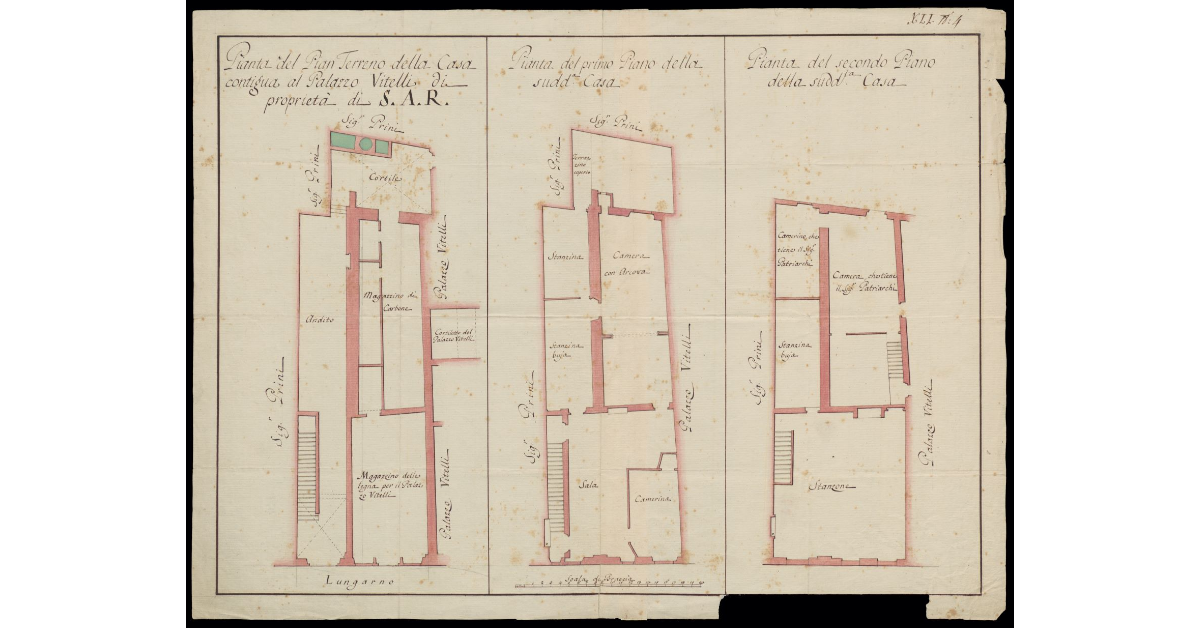 XLI. N: 4
Pianta del Pian Terreno della Casa
contigua al Palazzo Vitelli di
proprietà di S. A. R.
Sigʳ Prini
Sigʳ Prini
Cortile
Palazzo Vitelli
Magazzino di
Carbone
Andito
Corridojo del
Palazzo Vitelli
Sigʳ Prini
Magazzino delle
legna per il Palaz
zo Vitelli
Palazzo Vitelli
Lungarno
Pianta del primo Piano della
sudd.ᵃ Casa
Sigʳ Prini
Sigʳ Prini
Terraz
zino
scoperto
Stanzina
Camera
con Arcova
Stanzina
buja
Palazzo Vitelli
Sigʳ Prini
Sala
Camerina
Scala di Braccia
Pianta del secondo Piano
della sudd.ᵗᵃ Casa
Camerino che
tiene il Sigʳ
Patriarchi
Camera che tiene
il Sigʳ Patriarchi
Stanzina
buja
Sigʳ Prini
Palazzo Vitelli
Stanzone